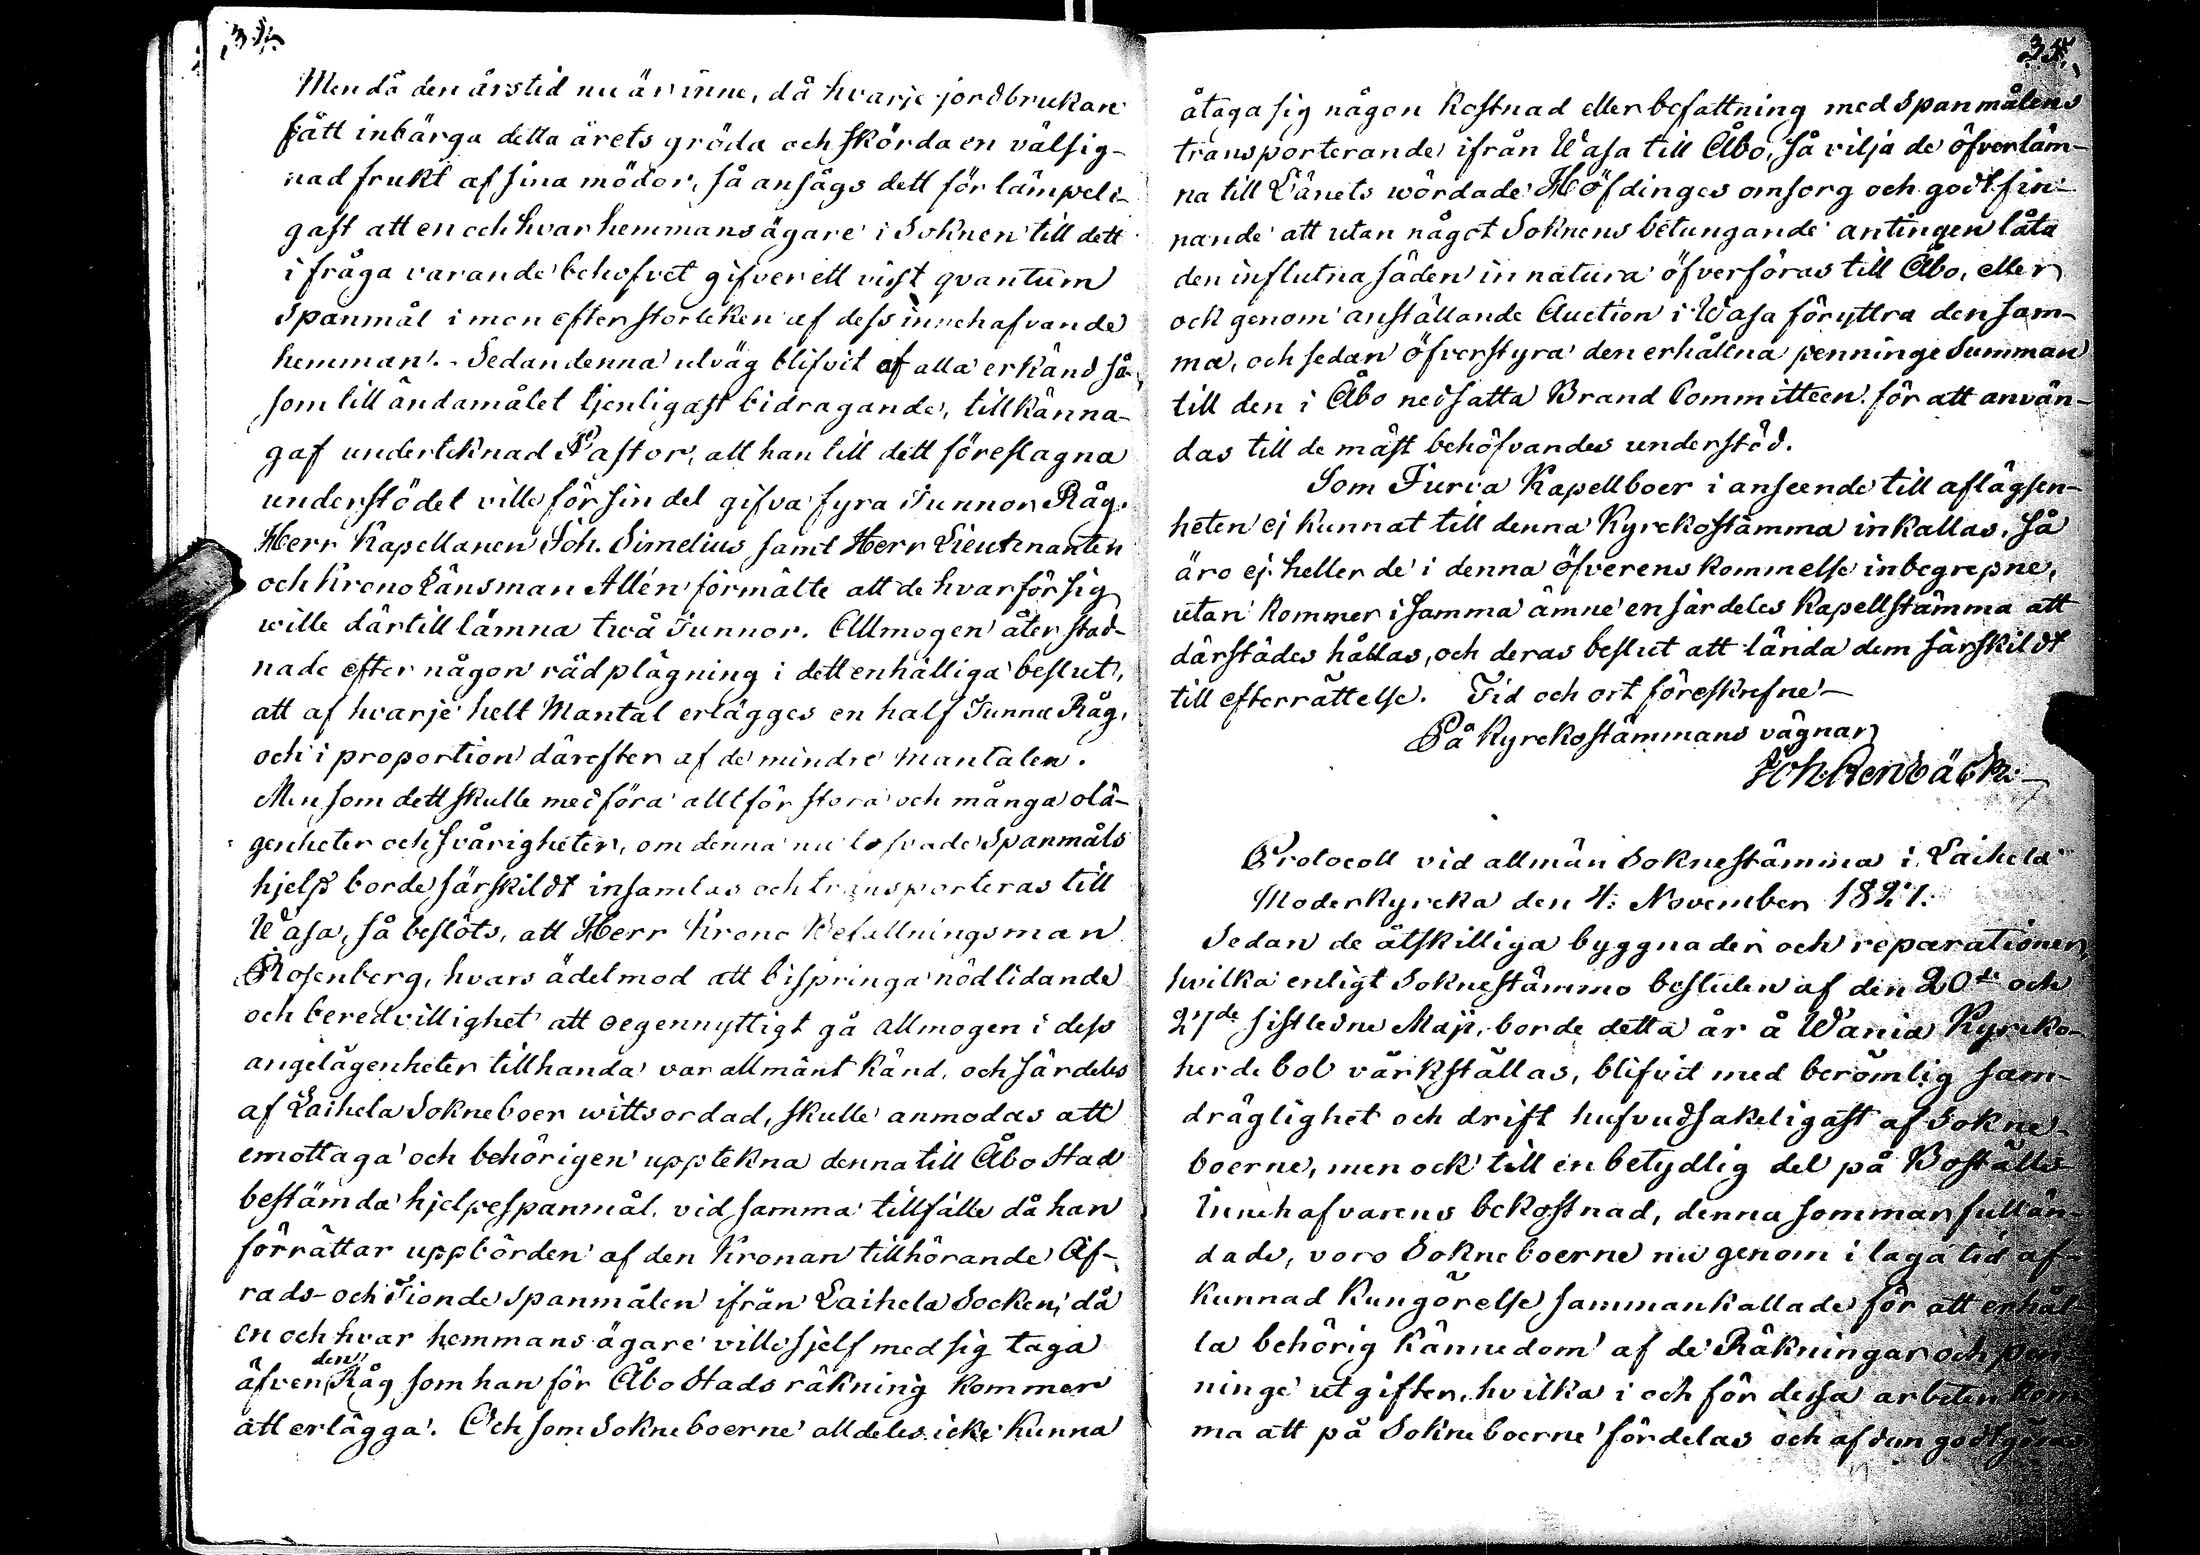 Men då den årstid nu är inne, då hvarje jordbrukare
fått inbärga detta årets gröda och skörda en välsig-
nad frukt af sina mödor, så ansågs dett för lämpeli-
gast att en och hvar hemmansägare i Soknen till dett
i fråga varande behofvet gifver ett visst qvantum
Spanmål i mon efter storleken af dess innehafvande
hemman. - Sedan denna utväg blifvit af alla erkänd så-
som till ändamålet tjenligast bidragande, tillkänna-
gaf undertecknad Pastor, att han till dett föreslagna
understödet ville för sin del gifva fyra Tunnor Råg.
Herr Kapellanen Joh. Simelius samt Herr Lieutnanten
och Krono Länsman Allén förmälte att de hvar för sig
wille därtill lämna twå Tunnor. Allmogen åter stad-
nade efter någon rådplägning i dett enhälliga beslut,
att af hvarje helt Mantal erlägges en half Tunna Råg,
och i proportion därefter af de mindre mantalen.
Men som dett skulle medföra alltför stora och många olä-
genheter och svårigheter, om denna nu lofvade Spanmåls
hjelp borde särskildt insamlas och transporteras till
Wasa, så beslöts, att Herr Krono Befallningsman
Rosenberg, hvars ädelmod att bispringa nödlidande
och beredvillighet att oegennyttigt gå allmogen i dess
angelägenheter tillhanda var allmänt känd, och särdeles
af Laihela Sokneboer wittsordad, skulle anmodas att
emottaga och behörigen upptekna denna till Åbo Stad
bestämda hjelpespanmål, vid samma tillfälle då han
förrättar uppbörden af den Kronan tillhörande Af-
rads- och Tionde spanmålen ifrån Laihela Socken, då
en och hvar hemmansägare ville sjelf med sig taga
äfven den Råg som han för Åbo Stads räkning kommer
att erlägga. Och som Sokneboerne alldeles icke kunna
35
åtaga sig någon kostnad eller befattning med Spanmålens
transporterande ifrån Wasa till Åbo, så vilja de öfverläm-
na till Länets wördade Höfdinges omsorg och godtfin-
nande att utan något Soknens betungande antingen låta
den influtna säden in natura öfverföras till Åbo, eller
ock genom anställande Auction i Wasa föryttra densam-
ma, och sedan öfverstyra den erhållna penninge Summan
till den i Åbo nedsatta Brand Committeen för att använ-
das till de mäst behöfvandes understöd.
Som Jurva Kapellboer i anseende till aflägsen-
heten ej kunnat till denna Kyrckostämma inkallas, så
äro ej heller de i denna öfverenskommelse inbegrepne,
utan kommer i samma ämne en särdeles Kapellstämma att
därstädes hållas, och deras beslut att lända dem särskildt
till efterrättelse. Tid och ort föreskrefne
På Kyrckostämmans vägnar
Protocoll vid allmän Soknestämma i Laihela
Moderkyrcka den 4: November 1827.
Sedan de åtskilliga byggnader och reparationer,
hvilka enligt Soknestämmo besluten af den 20de och
27de sistledne Maji, borde detta år å Wania Kyrcko-
herde bol värkställas, blifvit med berömlig sam-
dräglighet och drift hufvudsakeligast af Sokne-
boerne, men ock till en betydlig del på Boställs-
Innehafvarens bekostnad, denna sommar fullän-
dade, voro Sokneboerne nu genom i laga tid af-
kunnad kungörelse sammankallade för att erhål-
la behörig kännedom af de Räkningar och pen-
ninge utgifter, hvilka i och för dessa arbeten kom-
ma att på Sokneboerne fördelas och af dem godtgöras